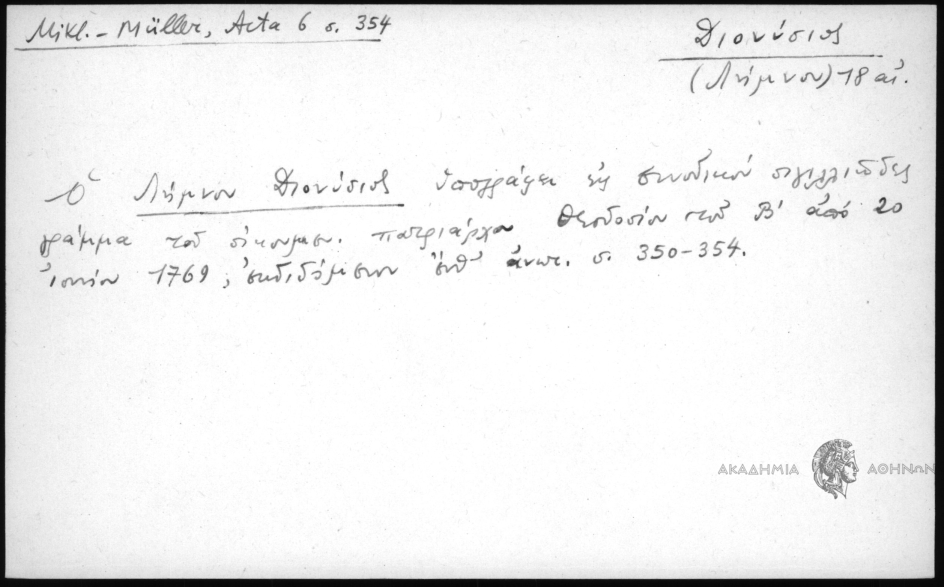 Mikl.-Müller, Acta 6 σ. 354
Διονύσιος
(Λήμνου) 18 αἰ.
Ὁ Λήμνου Διονύσιος ὑπογράφει εἰς συνοδικόν σιγιλλιῶδες
γράμμα τοῦ οἰκουμεν. πατριάρχου Θεοδοσίου τοῦ Β' ἀπό 20
ἰουνίου 1769, ἐκδιδόμενον ἐνθ' ἀνωτ. σ. 350-354.
ΑΚΑΔΗΜΙΑ ΑΘΗΝΩΝ